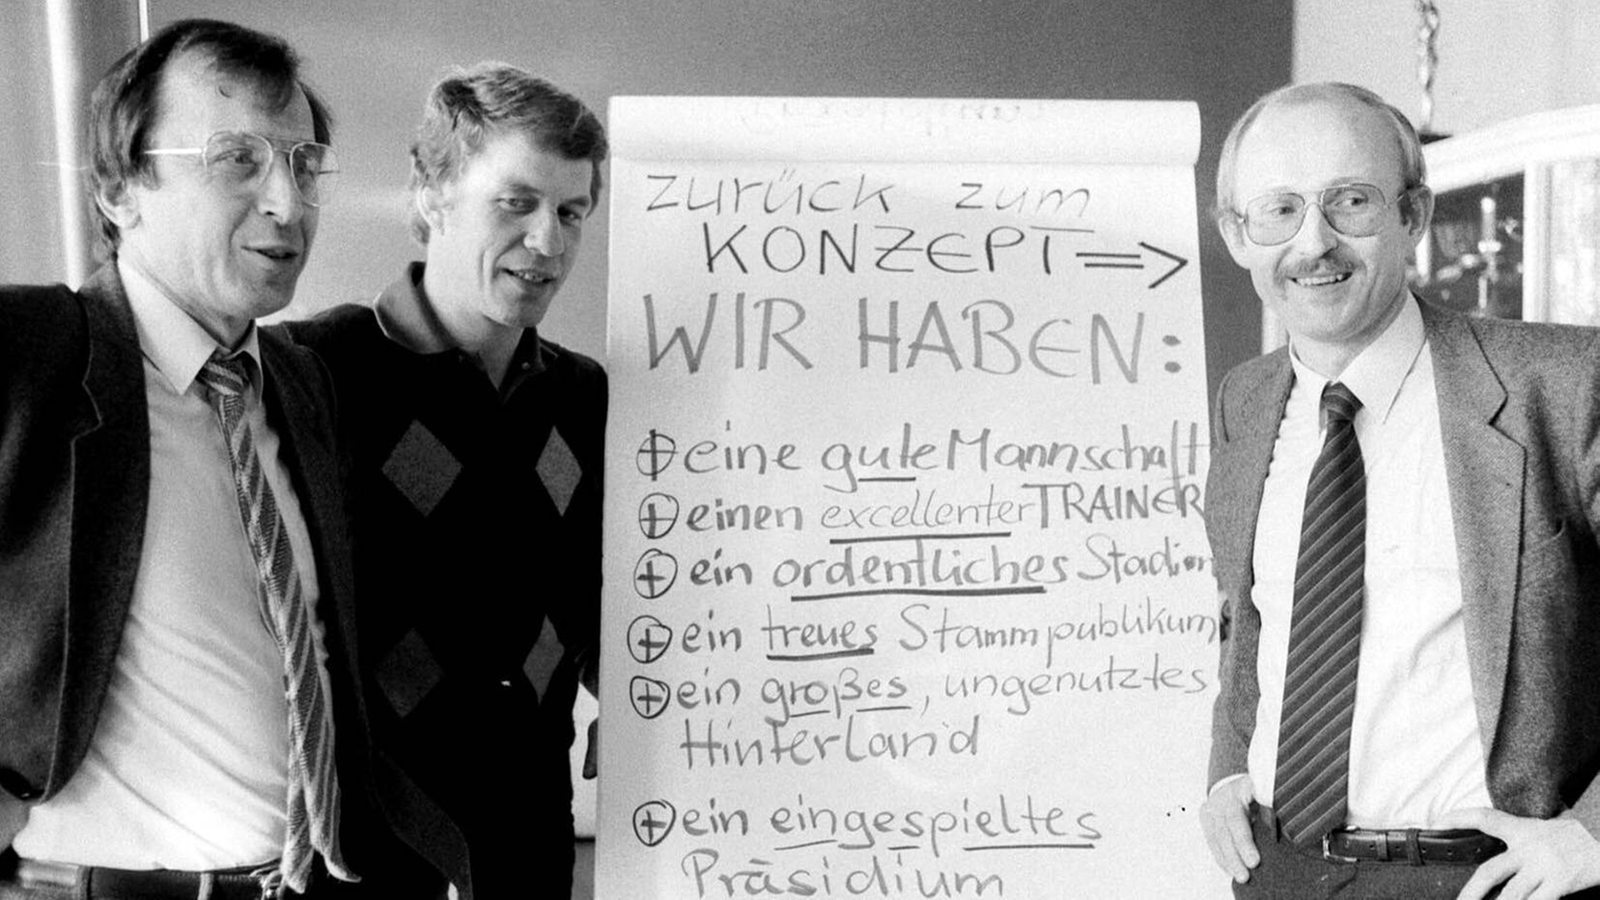 zurück zum
KONZEPT =>
WIR HABEN:
⊕ eine gute Mannschaft
⊕ einen excellenter TRAINER
⊕ ein ordentliches Stadion
⊕ ein treues Stammpublikum
⊕ ein großes, ungenutztes
Hinterland
⊕ ein eingespieltes
Präsidium